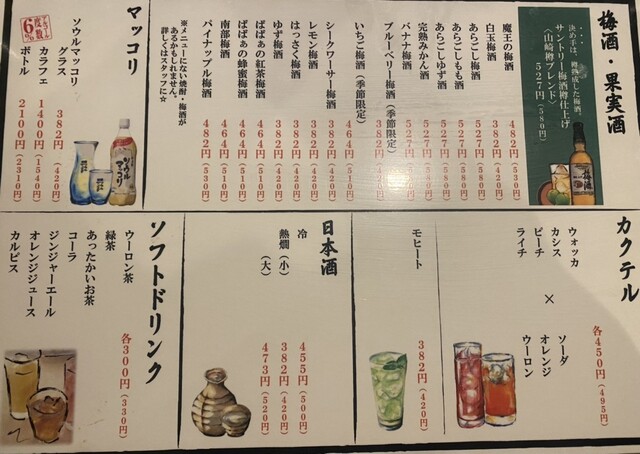 梅酒・果実酒
決め手は、樽熟成した梅酒。
サントリー梅酒樽仕上げ
〈山崎樽ブレンド〉
527円(580円)
魔王の梅酒 482円(530円)
白玉梅酒
あらごし梅酒 527円(580円)
あらごしもも酒 527円(580円)
あらごしゆず酒 527円(580円)
完熟みかん酒 527円
バナナ梅酒 527円
ブルーベリー梅酒(季節限定) 382円
いちご梅酒(季節限定) 464円(510円)
シークワーサー梅酒 382円(420円)
レモン梅酒 382円(420円)
はっさく梅酒 382円(420円)
ゆず梅酒 382円(420円)
ばばぁの紅茶梅酒 464円(510円)
ばばぁの蜂蜜梅酒 464円(510円)
南部梅酒 464円(510円)
パイナップル梅酒 482円(530円)
※メニューにない焼酎・梅酒が
あるかもしれません。
詳しくはスタッフに☆
マッコリ
アルコール
度数
6%
ソウルマッコリ
グラス 382円(420円)
カラフェ 1400円(1540円)
ボトル 2100円(2310円)
カクテル
各450円(495円)
ウォッカ
カシス
ピーチ
ライチ
×
ソーダ
オレンジ
ウーロン
モヒート 382円(420円)
日本酒
冷 455円(500円)
熱燗(小) 382円(420円)
(大) 473円(520円)
ソフトドリンク
各300円(330円)
ウーロン茶
緑茶
あったかいお茶
コーラ
ジンジャーエール
オレンジジュース
カルピス